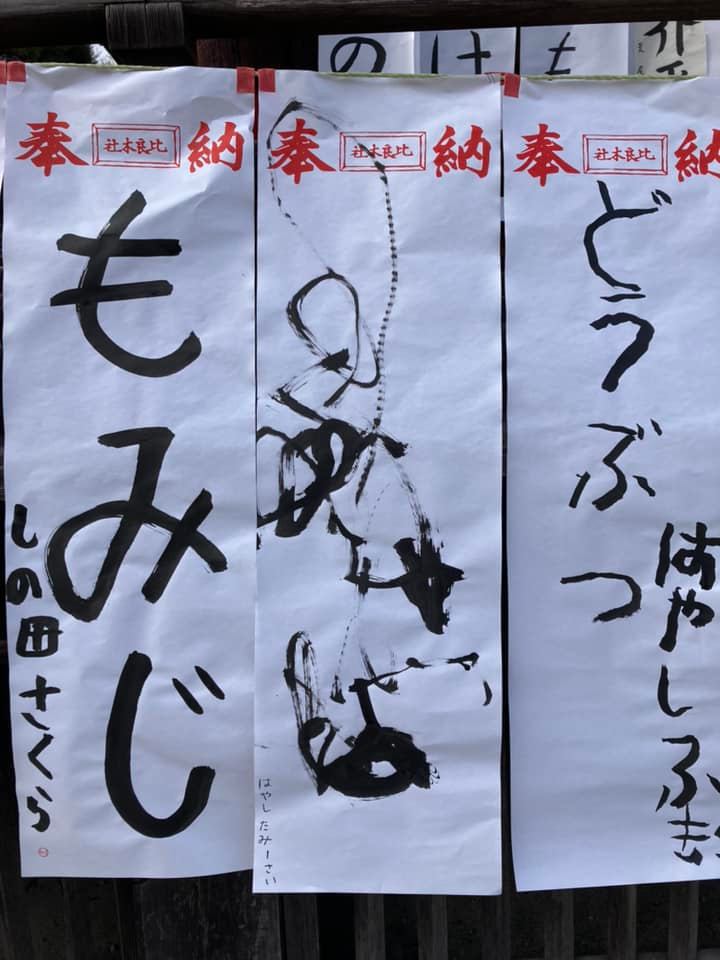 の
け
も
奉 比良木社 納
もみじ
しの田さくら
奉 比良木社 納
はやし たみ 一さい
奉 比良木社 納
どうぶつ
はやしふき